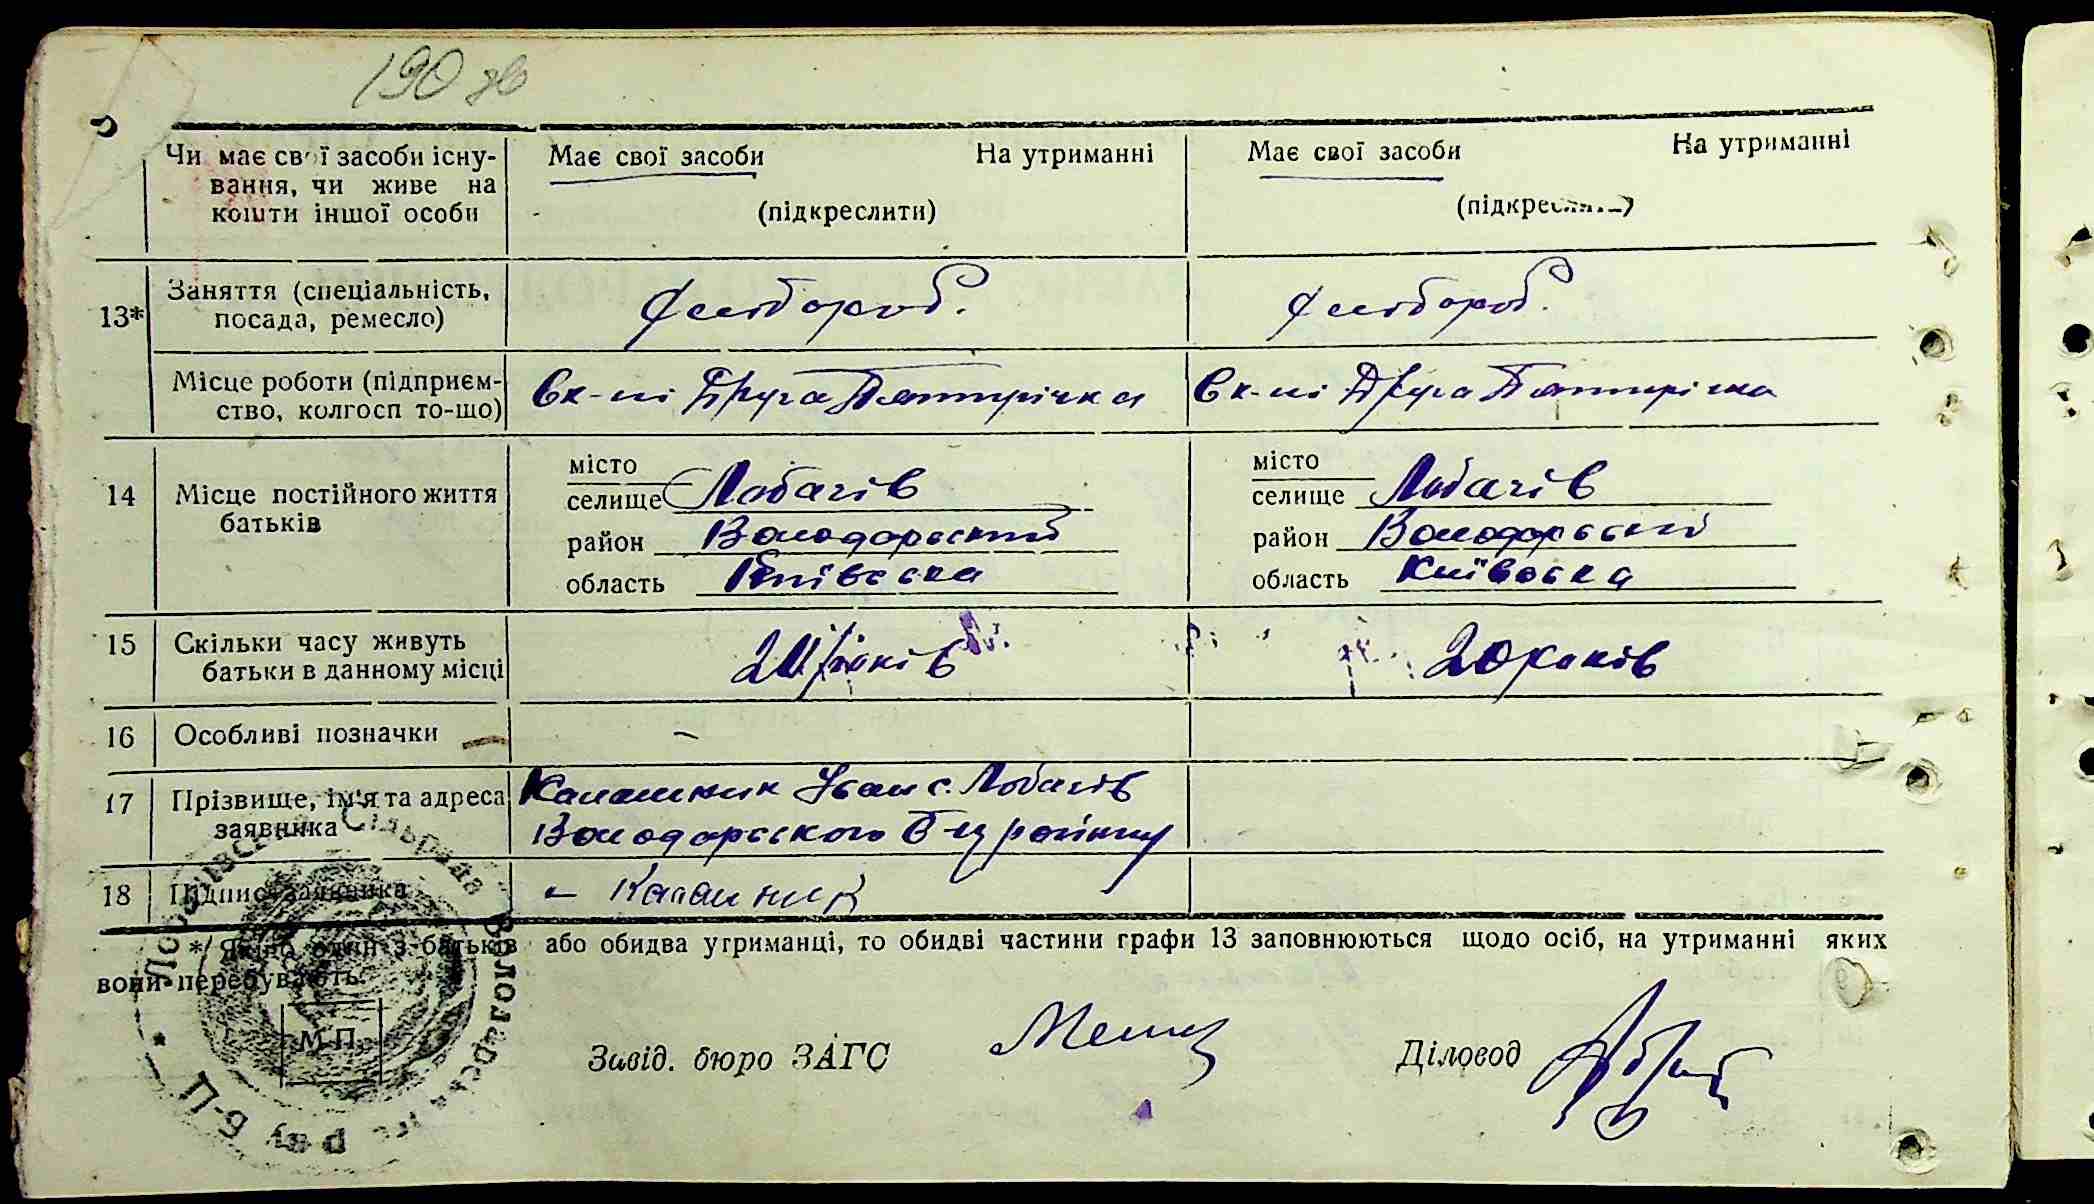 190 зв
Чи має свої засоби існу-
вання, чи живе на
кошти іншої особи
Має свої засоби На утриманні
(підкреслити)
Має свої засоби На утриманні
(підкреслити)
13*
Заняття (спеціальність,
посада, ремесло)
хлібороб.
хлібороб.
Місце роботи (підприєм-
ство, колгосп то-що)
Друга Пятирічка
Друга Пятирічка
14
Місце постійного життя
батьків
місто
селище Лобачів
район Володарський
область Київська
місто
селище Лобачів
район Володарський
область Київська
15
Скільки часу живуть
батьки в данному місці
років
20 років
16
Особливі позначки
–
17
Прізвище, ім'я та адреса
заявника
Калашник Іван с. Лобачів
Володарського Б-Ц району
18
Підпис заявника
– Калашник
* Якщо один з батьків або обидва утриманці, то обидві частини графи 13 заповнюються щодо осіб, на утриманні яких
вони перебувають.
М.П.
Завід. бюро ЗАГС
Діловод
Сільрада Володарськ Б-Ц